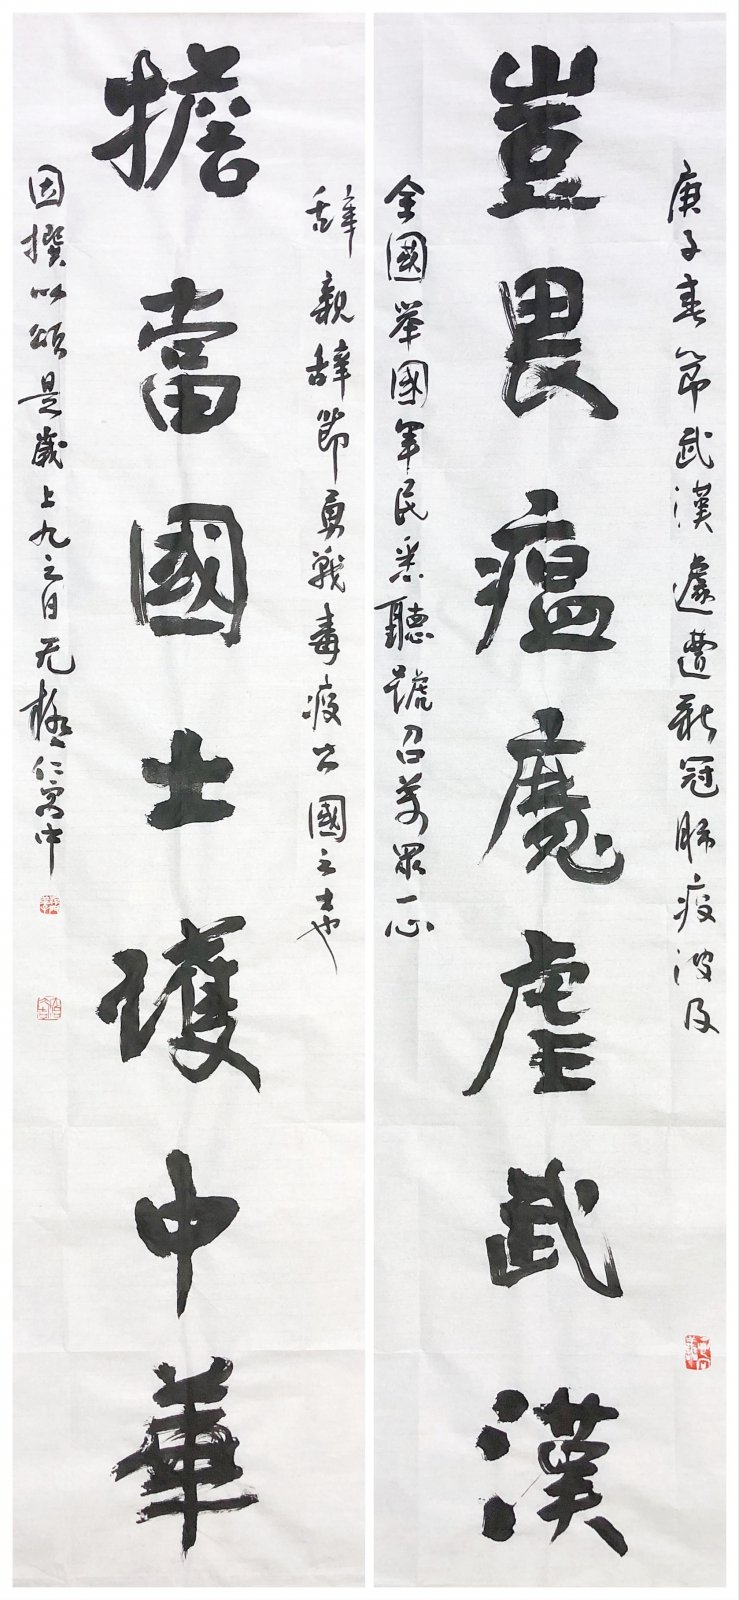 庚子春節武漢遽遭新冠肺疫波及
豈畏瘟魔虐武漢
全國舉國軍民悉聽號召萬眾一心
辞親辞節勇戰毒疫公國之士也
擔當國士護中華
因撰以頌是歲上九之日无極仁寫中